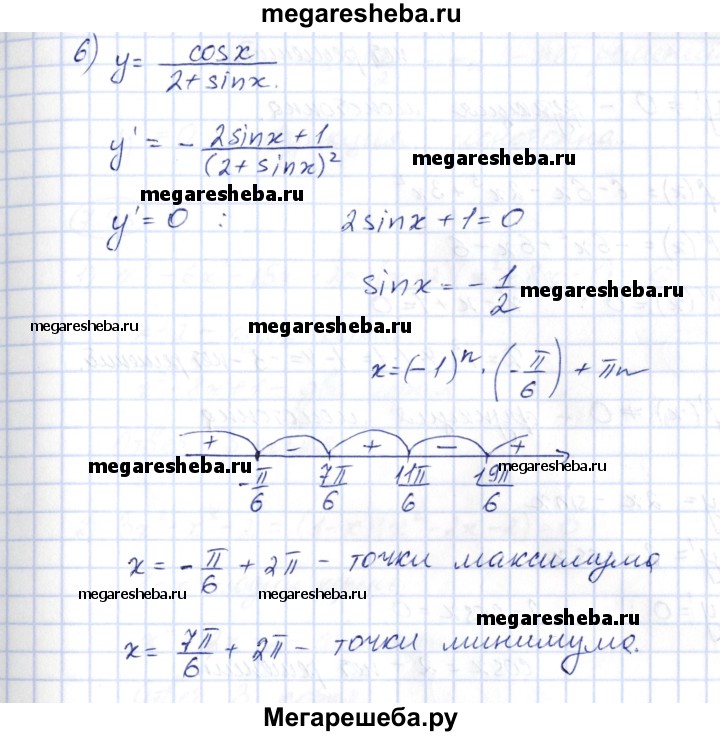 megaresheba.ru
6) y = cosx / 2+sinx.
y' = - 2sinx+1 / (2+sinx)²
megaresheba.ru
megaresheba.ru
y' = 0 : 2sinx+1=0
sinx = - 1/2
megaresheba.ru
megaresheba.ru megaresheba.ru
x = (-1)ⁿ · (-π/6) + πn
+ - + - +
megaresheba.ru megaresheba.ru
-π/6 7π/6 11π/6 19π/6
x = - π/6 + 2π - точки максимума
megaresheba.ru megaresheba.ru
megaresheba.ru
x = 7π/6 + 2π - точки минимума.
Мегарешеба.ру